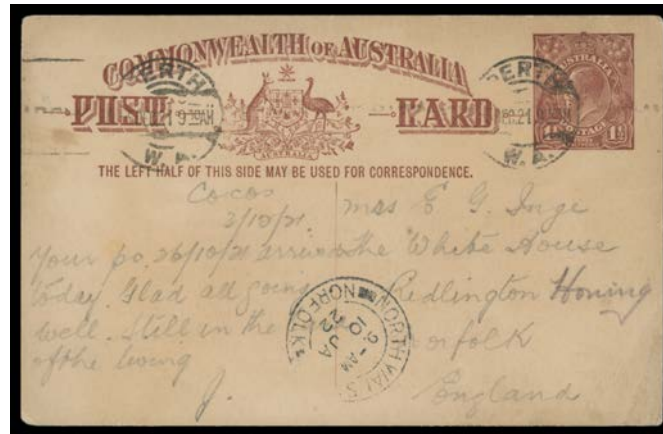 COMMONWEALTH OF AUSTRALIA
POST CARD
PERTH
9 30 AM
W.A.
PERTH
21 9 30 AM
W.A.
AUSTRALIA
POSTAGE
1½
AUSTRALIA
THE LEFT HALF OF THIS SIDE MAY BE USED FOR CORRESPONDENCE.
Cocos
2/12/21
Your pc. 26/10/21 arrived
today. Glad all going
well. Still in the
of the living
J.
Mrs E G. Inge
The White House
Ridlington Honing
Norfolk
England
NORTH WALS
NORFOLK
2 - AM
10 JA
22